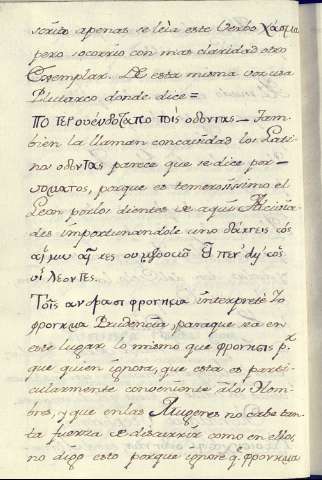 scrito apenas se leìa este Verbo χάσμα
pero ocorrio con mas claridad otro
Exemplar. De esta misma voz usa
Plutarco donde dice =
οδοντας — Tam-
bien la llaman concauidad los Lati-
nos οδοντας parece que se dice por —
porque es temerosissimo el
Leon por los dientes de aqui Alcivia-
des importunandole uno δάκνεις ὡς
ὡς
οἱ λεοντες.
Τοῖς ανδρασι φρονημα interpretè Yo
φρονημα Prudencia, paraque sea en
este lugar lo mismo que φρονησις p.ʳ
que quien ignora, que esta es parti-
cularmente conveniente â los Hom-
bres, y que en las Mugeres no cabe tan-
ta fuerza de discurrir como en ellos,
no digo esto porque ignore q. φρονημα